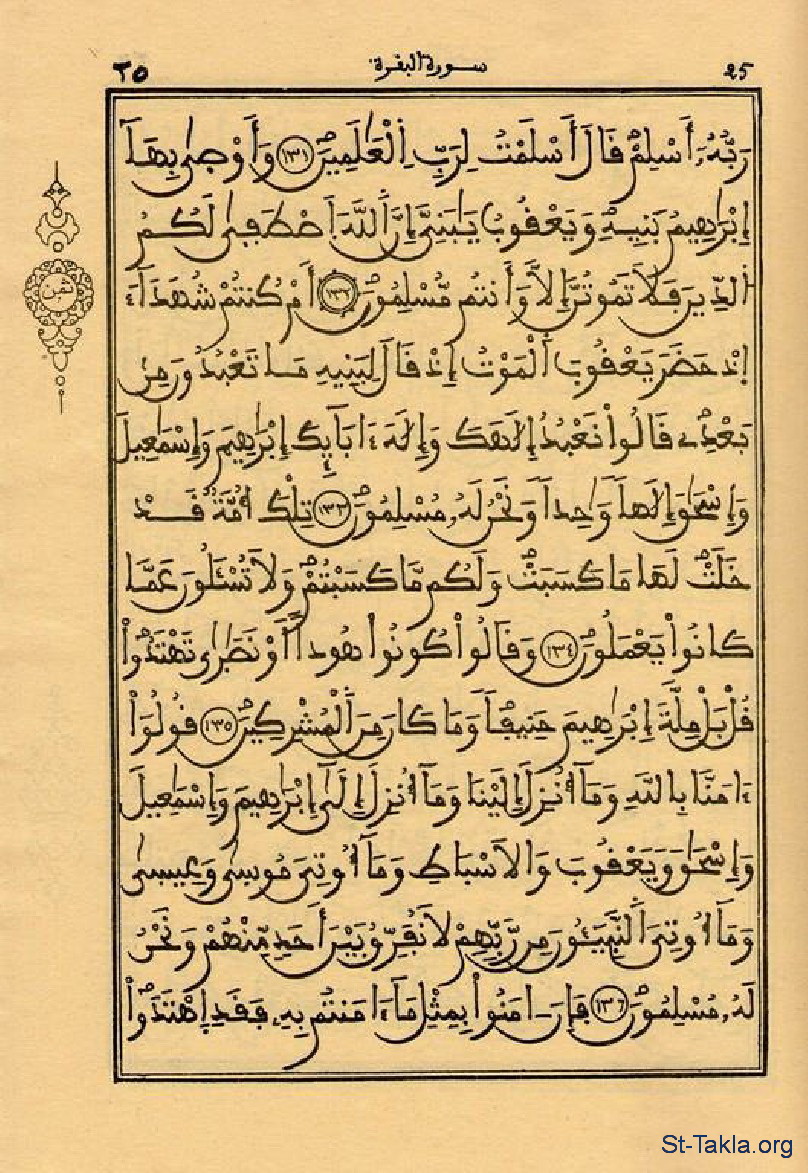 ٢٥ سورة البقرة 25
رَبُّهُۥٓ أَسْلِمْ قَالَ أَسْلَمْتُ لِرَبِّ اِ۬لْعَٰلَمِينَۖ ١٣١ وَأَوْص۪ىٰ بِهَآ
إِبْرَٰهِيمُ بَنِيهِ وَيَعْقُوبُ يَٰبَنِيَّ إِنَّ اَ۬للَّهَ اَ۪صْطَف۪ىٰ لَكُمُ
اُ۬لدِّينَ فَلَا تَمُوتُنَّ إِلَّا وَأَنتُم مُّسْلِمُونَۖ ١٣٢ أَمْ كُنتُمْ شُهَدَآءَ
اِ۪ذْ حَضَرَ يَعْقُوبَ اَ۬لْمَوْتُ إِذْ قَالَ لِبَنِيهِ مَا تَعْبُدُونَ مِنۢ
بَعْدِےۖ قَالُواْ نَعْبُدُ إِلَٰهَكَ وَإِلَٰهَ ءَابَآئِكَ إِبْرَٰهِيمَ وَإِسْمَٰعِيلَ
وَإِسْحَٰقَ إِلَٰهاٗ وَٰحِداٗ وَنَحْنُ لَهُۥ مُسْلِمُونَۖ ١٣٣ تِلْكَ أُمَّةٞ قَدْ
خَلَتْۖ لَهَا مَا كَسَبَتْۖ وَلَكُم مَّا كَسَبْتُمْۖ وَلَا تُسْـَٔلُونَ عَمَّا
كَانُواْ يَعْمَلُونَۖ ١٣٤ وَقَالُواْ كُونُواْ هُوداً اَوْ نَصَٰر۪ىٰ تَهْتَدُواْۖ
قُلْ بَلْ مِلَّةَ إِبْرَٰهِيمَ حَنِيفاٗۖ وَمَا كَانَ مِنَ اَ۬لْمُشْرِكِينَۖ ١٣٥ قُولُوٓاْ
ءَامَنَّا بِاللَّهِ وَمَآ أُنزِلَ إِلَيْنَا وَمَآ أُنزِلَ إِلَىٰٓ إِبْرَٰهِيمَ وَإِسْمَٰعِيلَ
وَإِسْحَٰقَ وَيَعْقُوبَ وَالَاسْبَاطِ وَمَآ أُوتِيَ مُوس۪ىٰ وَعِيس۪ىٰ
وَمَآ أُوتِيَ اَ۬لنَّبِيٓـُٔونَ مِن رَّبِّهِمْ لَا نُفَرِّقُ بَيْنَ أَحَدٖ مِّنْهُمْ وَنَحْنُ
لَهُۥ مُسْلِمُونَۖ ١٣٦ فَإِنَ اٰمَنُواْ بِمِثْلِ مَآ ءَامَنتُم بِهِۦ فَقَدِ اِ۪هْتَدَواْۖ
ثمن
St-Takla.org